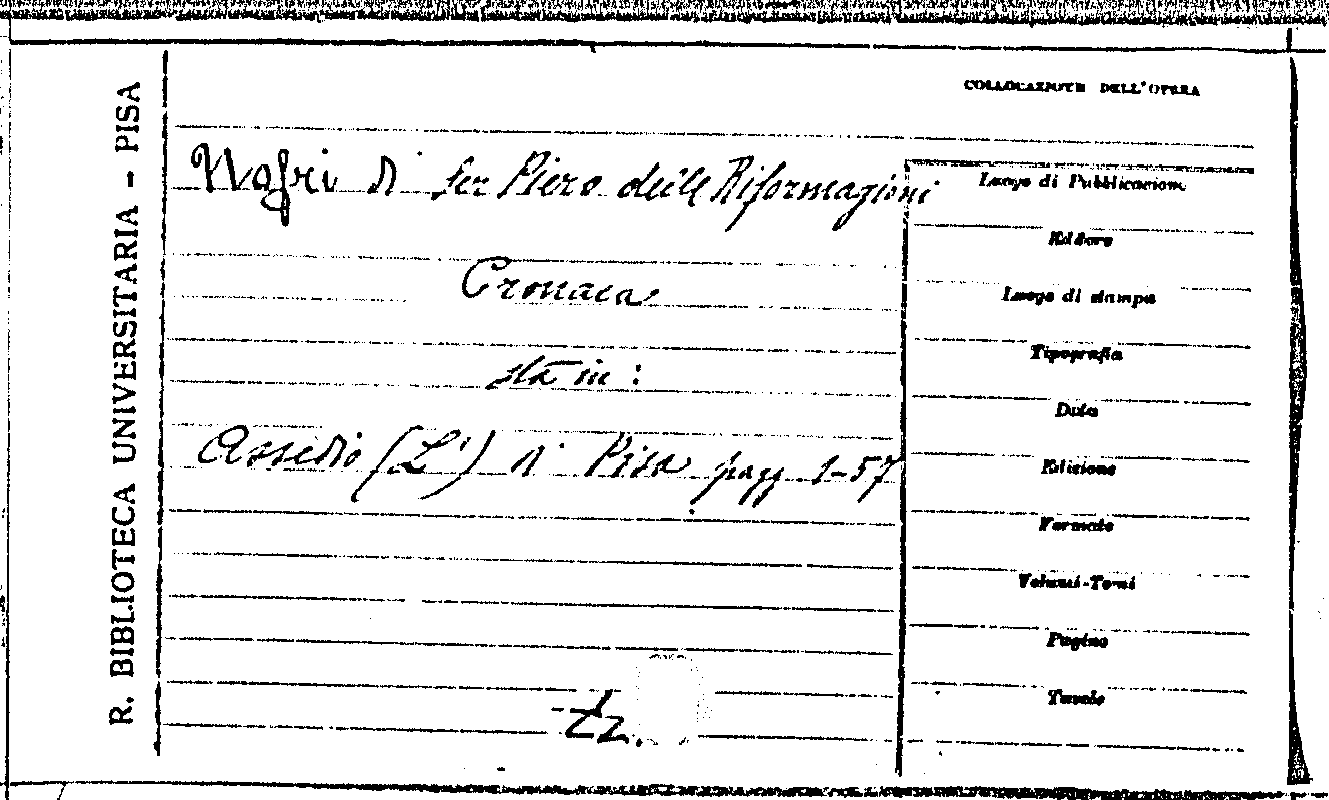 R. BIBLIOTECA UNIVERSITARIA - PISA
COLLOCAZIONE DELL'OPERA
Nofri di Ser Piero delle Riformagioni
Cronaca
sta in:
Assedio (L') di Pisa pagg. 1-57
Luogo di Pubblicazione
Editore
Luogo di stampa
Tipografia
Data
Edizione
Formato
Volumi-Tomi
Pagine
Tavole